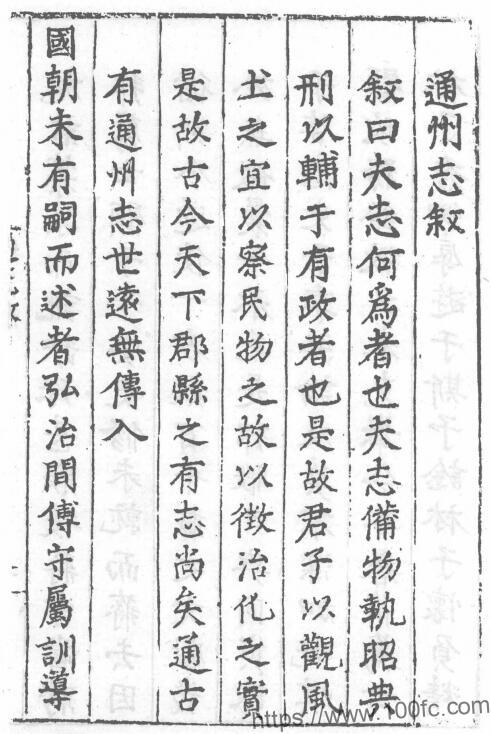 通州志敘
敘曰夫志何爲者也夫志備物執昭典
刑以輔于有政者也是故君子以觀風
土之宜以察民物之故以徴治化之實
是故古今天下郡縣之有志尚矣通古
有通州志世遠無傳入
國朝未有嗣而述者弘治間傅守屬訓導
https://www.100fc.com